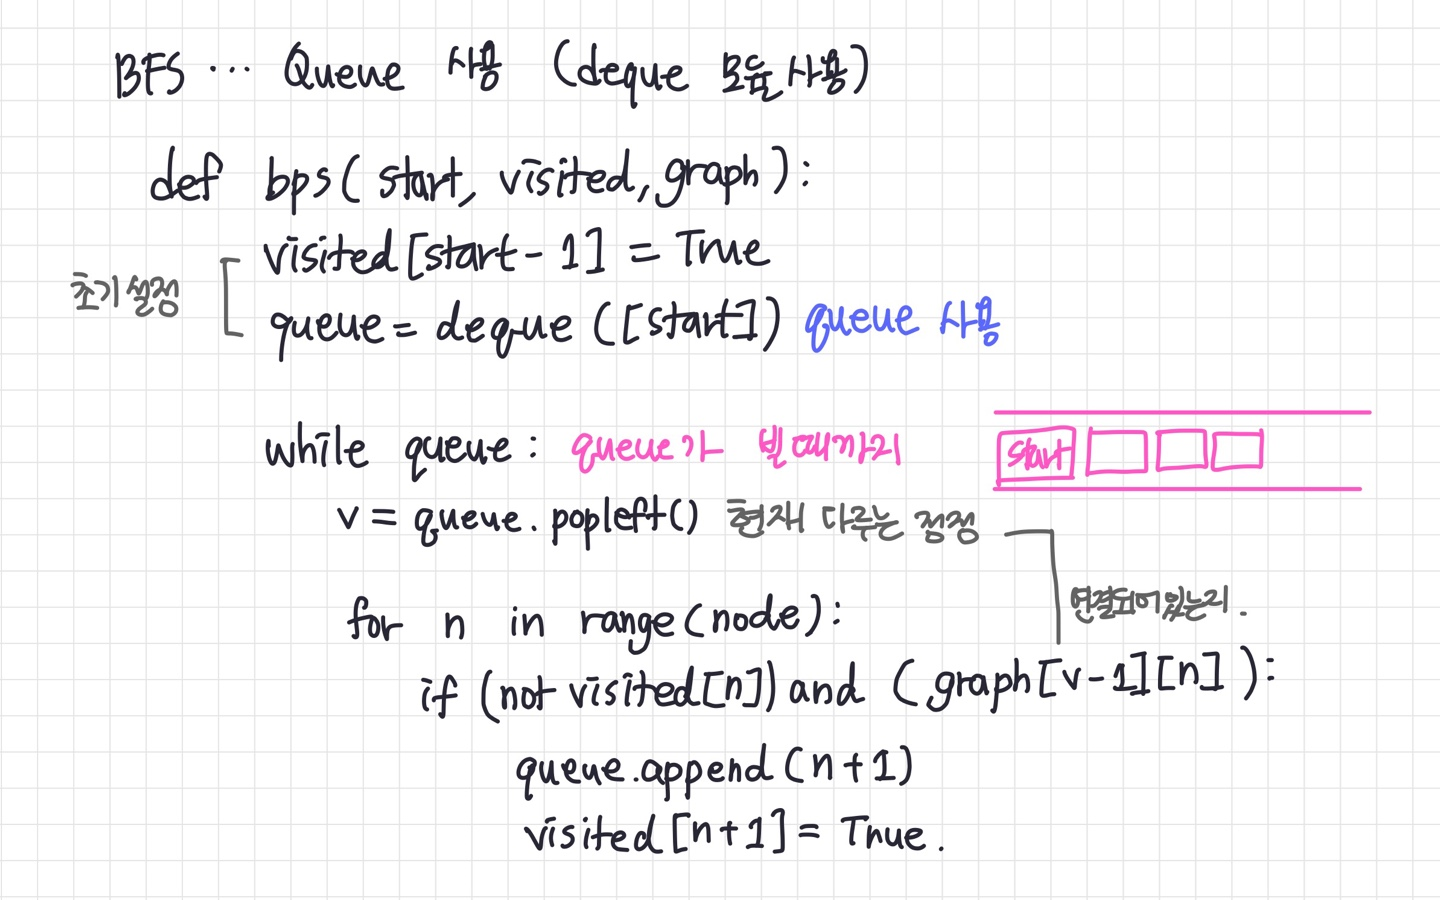 BFS ... Queue 사용 (deque 모듈 사용)
def bps( start, visited, graph ):
visited[start - 1] = True
초기설정
queue = deque ([start]) queue 사용
while queue : queue가 빌때까지
start
v = queue. popleft() 현재 다루는 정점
for n in range(node):
연결되어있는지.
if (not visited[n]) and ( graph[v-1][n] ):
queue.append (n+1)
visited [n+1] = True.